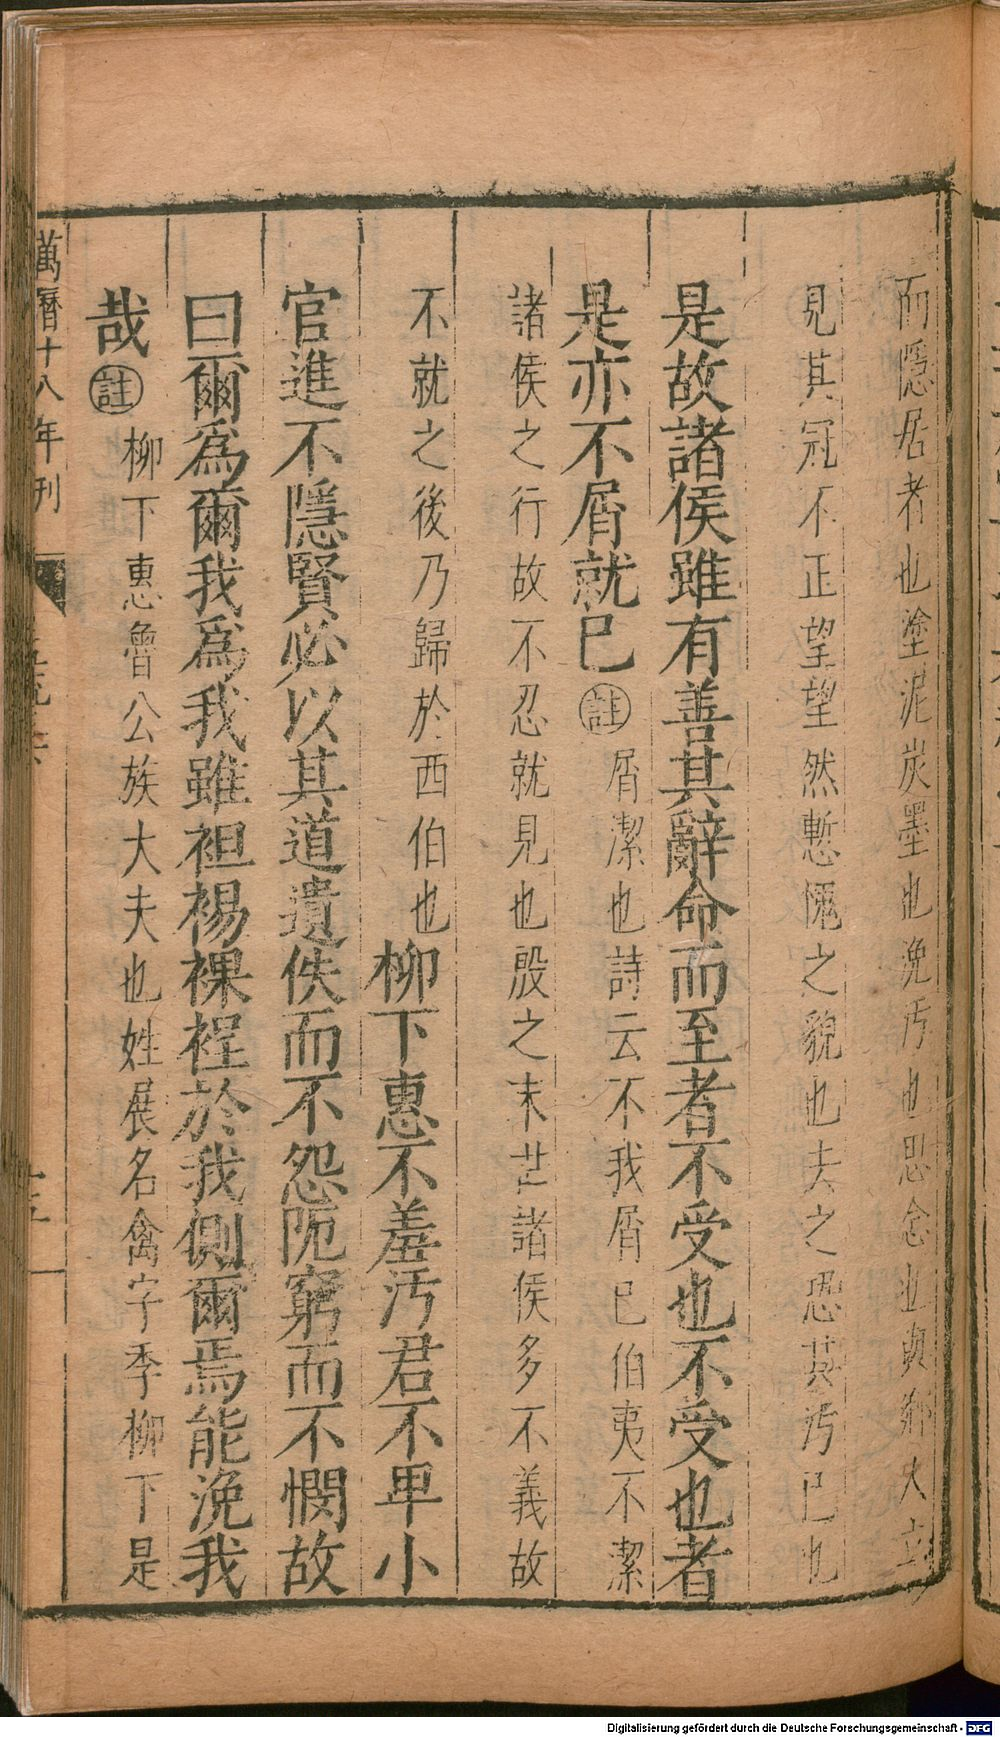 而隱居者也塗泥炭墨也浼汚也思念也與鄉人立
見其冠不正望望然慙愧之貌也去之恐其汚己也
是故諸侯雖有善其辭命而至者不受也不受也者
是亦不屑就已註屑潔也詩云不我屑已伯夷不潔
諸侯之行故不忍就見也殷之末世諸侯多不義故
不就之後乃歸於西伯也柳下惠不羞汚君不卑小
官進不隱賢必以其道遺佚而不怨阨窮而不憫故
曰爾爲爾我爲我雖袒裼裸裎於我側爾焉能浼我
哉註柳下惠魯公族大夫也姓展名禽字季柳下是
萬曆十八年刊
Digitalisierung gefördert durch die Deutsche Forschungsgemeinschaft - DFG